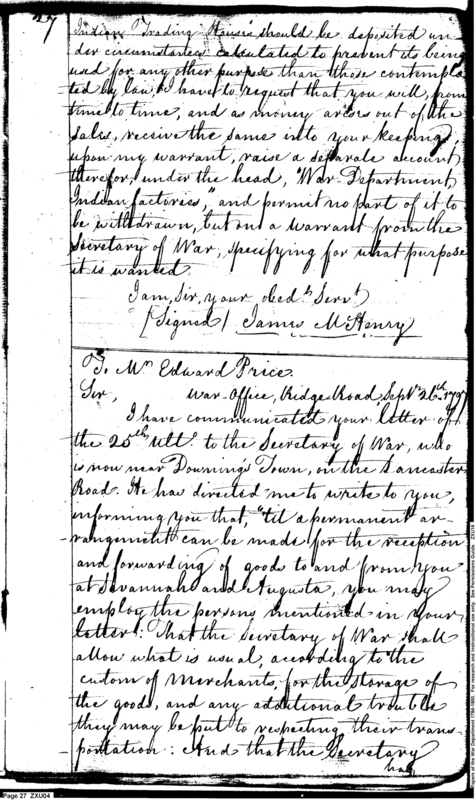 27
Indian Trading Houses should be deposited un-
der circumstances calculated to prevent its being
used for any other purpose than those contempla-
ted by law, I have to request that you will, from
time to time, and as money arises out of the
sales, receive the same into your keeping,
upon my warrant, raise a separate account
therefor, under the head, "War-Department,
Indian factories," and permit no part of it to
be withdrawn, but on a warrant from the
Secretary of War, specifying for what purpose
it is wanted.
I am, Sir, your obedt. Servt.
[Signed] James McHenry
To Mr. Edward Price.
Sir, War-Office, Ridge Road, Sepr. 26th. 1797
I have communicated your letter of
the 25th. ulto. to the Secretary of War, who
is now near Downing's Town, on the Lancaster
Road. He has directed me to write to you,
informing you that, "'til a permanent ar-
rangement can be made for the reception
and forwarding of goods to and from you
at Savannah and Augusta, you may
employ the persons mentioned in your
letter: That the Secretary of War shall
allow what is usual, according to the
custom of Merchants, for the storage of
the goods, and any additional trouble
they may be put to respecting their trans-
portation: And that the Secretary
has
Page 27 ZXU04